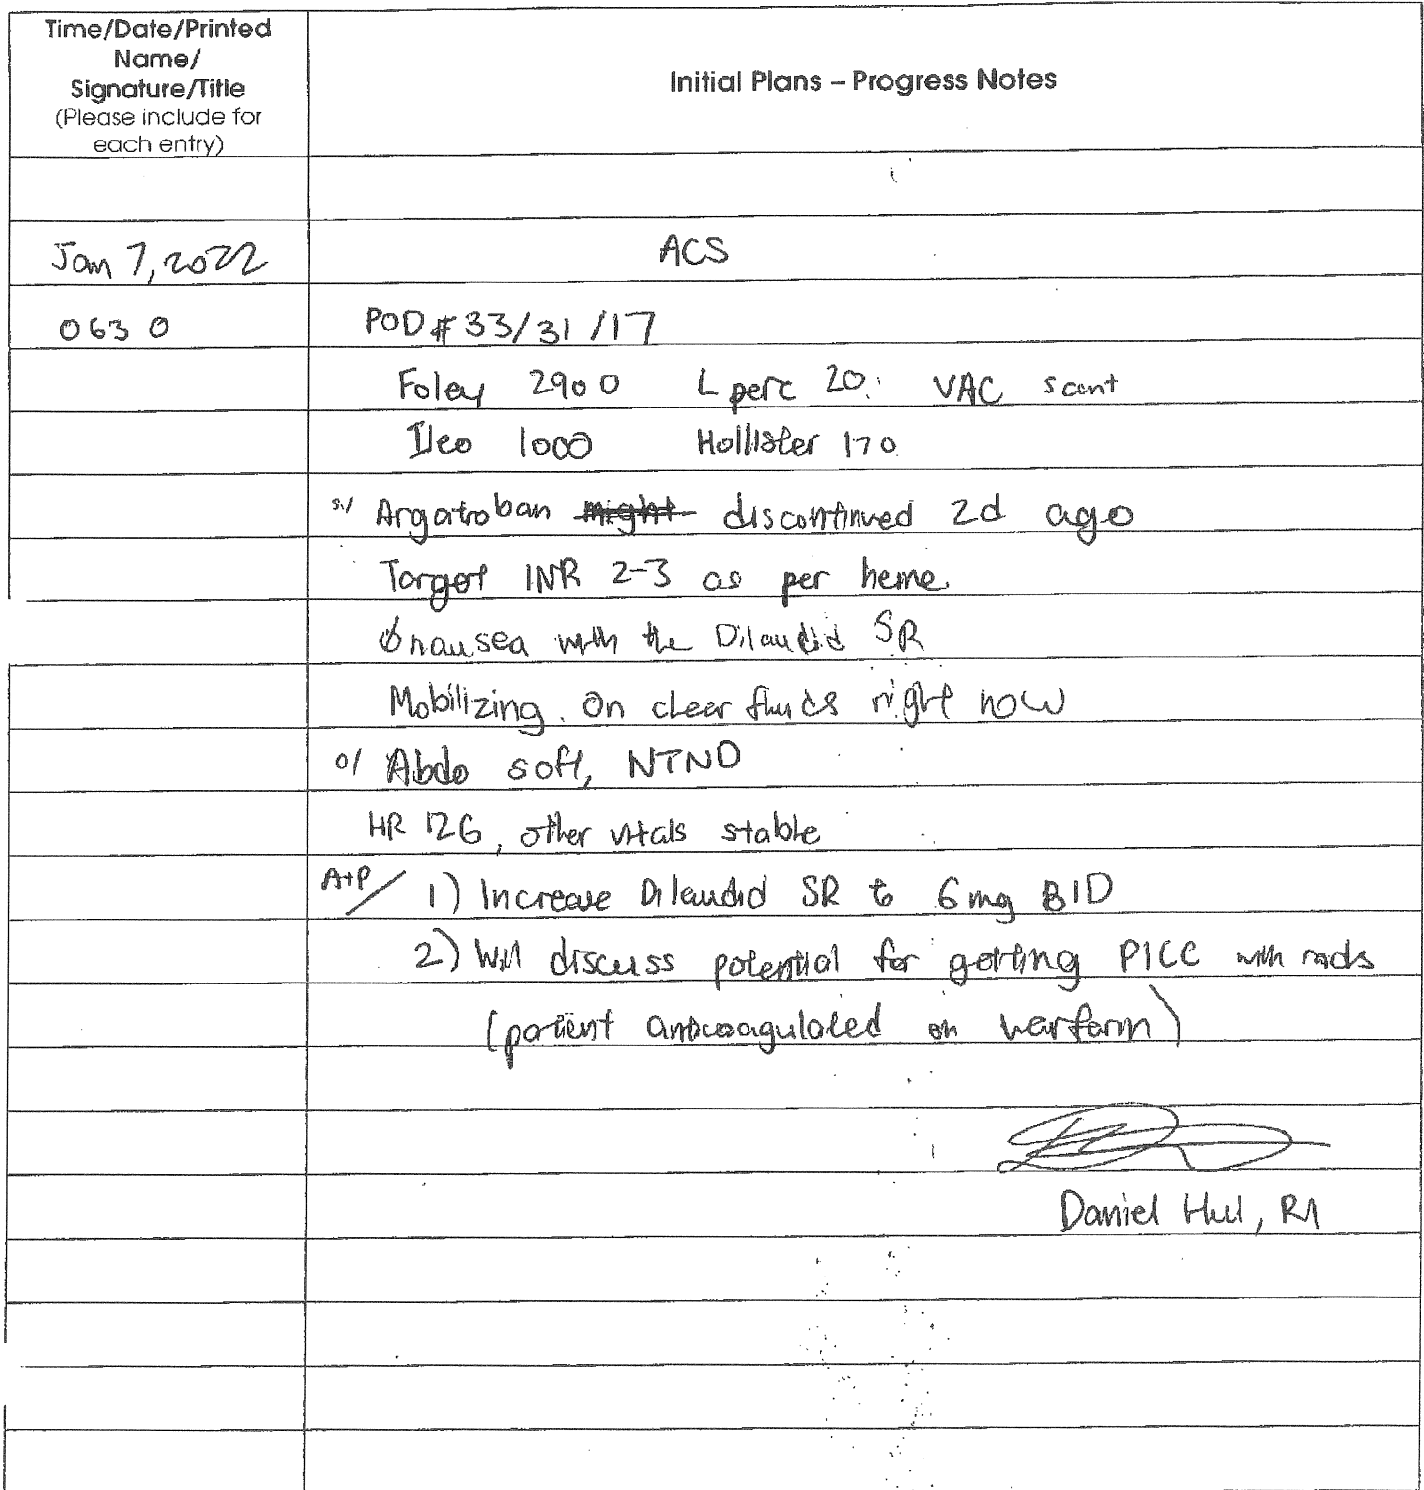 Time/Date/Printed
Name/
Signature/Title
(Please include for
each entry)
Initial Plans – Progress Notes
Jan 7, 2022
ACS
0630
POD # 33/31/17
Foley 2900 L perc 20 VAC scant
Ileo 1000 Hollister 170
s/ Argatroban might discontinued 2d ago
Target INR 2-3 as per heme.
Ø nausea with the Dilaudid SR
Mobilizing. On clear fluids right now
o/ Abdo soft, NTND
HR 126, other vitals stable
A+P/ 1) Increase Dilaudid SR to 6 mg BID
2) Will discuss potential for getting PICC with rads
(patient anticoagulated on warfarin)
Daniel